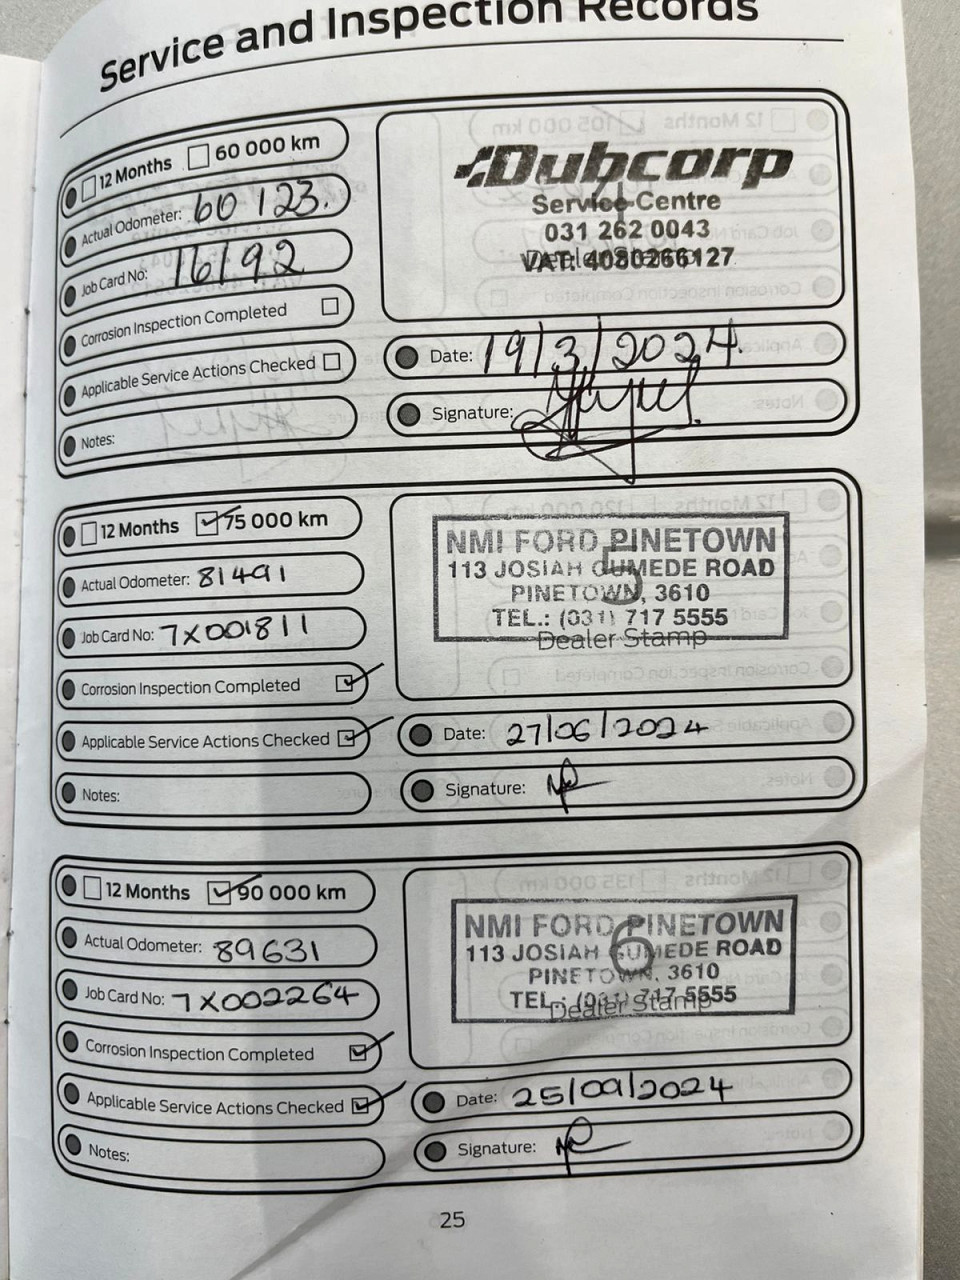 Service and Inspection Records
12 Months 60 000 km
Actual Odometer: 60 123.
Job Card No: 16192
Corrosion Inspection Completed
Applicable Service Actions Checked
Notes:
Dubcorp
Service Centre
031 262 0043
VAT: 4080266127
4
Dealer Stamp
Date: 19/3/2024.
Signature:
12 Months 75 000 km
Actual Odometer: 81491
Job Card No: 7X001811
Corrosion Inspection Completed
Applicable Service Actions Checked
Notes:
NMI FORD PINETOWN
113 JOSIAH GUMEDE ROAD
PINETOWN, 3610
TEL.: (031) 717 5555
5
Dealer Stamp
Date: 27/06/2024
Signature:
12 Months 90 000 km
Actual Odometer: 89631
Job Card No: 7X002264
Corrosion Inspection Completed
Applicable Service Actions Checked
Notes:
NMI FORD PINETOWN
113 JOSIAH GUMEDE ROAD
PINETOWN, 3610
TEL.: (031) 717 5555
6
Dealer Stamp
Date: 25/09/2024
Signature:
25